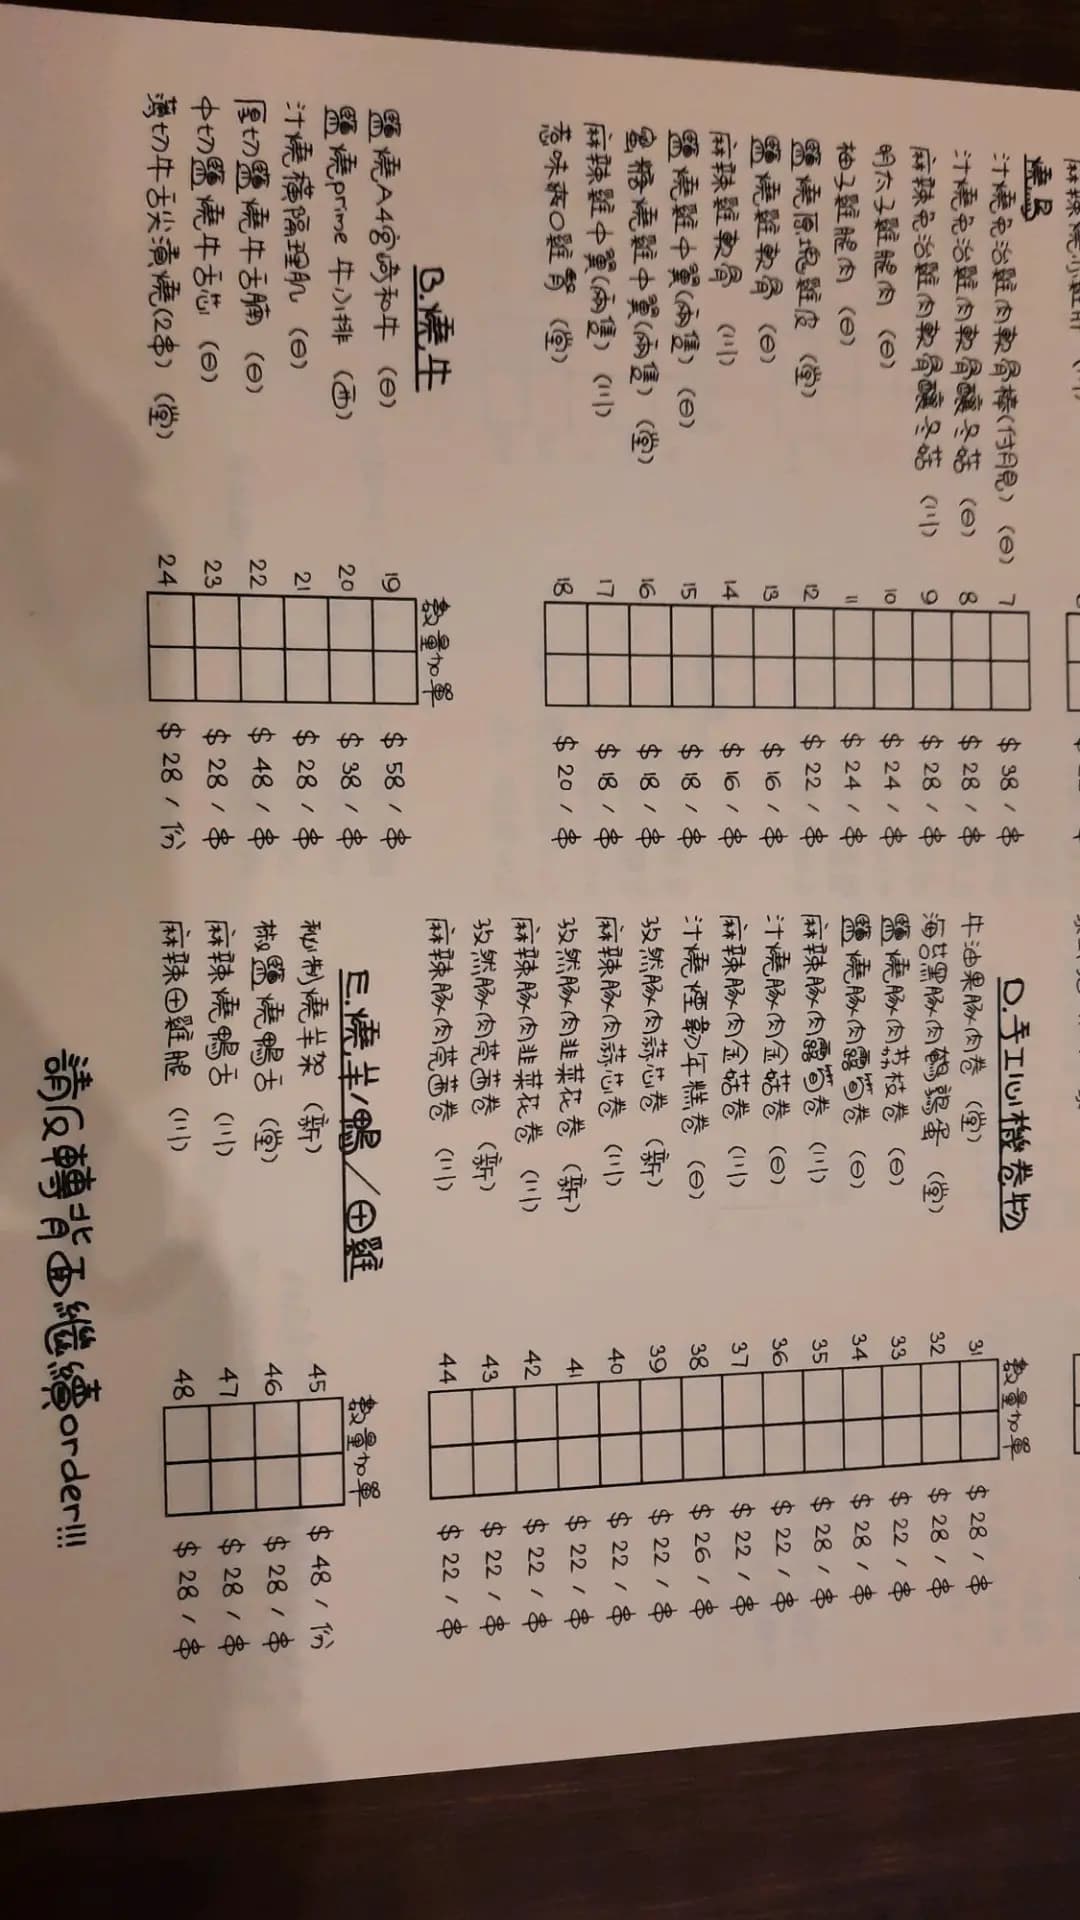 燒鳥
汁燒免治雞肉軟骨棒(付月見) (日) 7 $38/串
汁燒免治雞肉軟骨釀冬菇 (日) 8 $28/串
麻辣免治雞肉軟骨釀冬菇 (川) 9 $28/串
明太子雞腿肉 (日) 10 $24/串
柚子雞腿肉 (日) 11 $24/串
鹽燒原塊雞皮 (堂) 12 $22/串
鹽燒雞軟骨 (日) 13 $16/串
麻辣雞軟骨 (川) 14 $16/串
鹽燒雞中翼(兩隻) (日) 15 $18/串
蜜糖燒雞中翼(兩隻) (堂) 16 $18/串
麻辣雞中翼(兩隻) (川) 17 $18/串
惹味爽口雞腎 (堂) 18 $20/串
B.燒牛
數量 加單
鹽燒A4宮崎和牛 (日) 19 $58/串
鹽燒prime 牛小排 (西) 20 $38/串
汁燒橫隔理肌 (日) 21 $28/串
厚切鹽燒牛舌腩 (日) 22 $48/串
中切鹽燒牛舌芯 (日) 23 $28/串
薄切牛舌尖漬燒(2串) (堂) 24 $28/份
D.手工心機卷物
數量 加單
牛油果豚肉卷 (堂) 31 $28/串
海苔黑豚肉鵪鶉蛋 (堂) 32 $28/串
鹽燒豚肉荔枝卷 (日) 33 $22/串
鹽燒豚肉露筍卷 (日) 34 $28/串
麻辣豚肉露筍卷 (川) 35 $28/串
汁燒豚肉金菇卷 (日) 36 $22/串
麻辣豚肉金菇卷 (川) 37 $22/串
汁燒煙韌年糕卷 (日) 38 $26/串
孜然豚肉蒜芯卷 (新) 39 $22/串
麻辣豚肉蒜芯卷 (川) 40 $22/串
孜然豚肉韭菜花卷 (新) 41 $22/串
麻辣豚肉韭菜花卷 (川) 42 $22/串
孜然豚肉莞茜卷 (新) 43 $22/串
麻辣豚肉莞茜卷 (川) 44 $22/串
E.燒羊/鴨/田雞
數量 加單
秘制燒羊架 (新) 45 $48/份
椒鹽燒鴨舌 (堂) 46 $28/串
麻辣燒鴨舌 (川) 47 $28/串
麻辣田雞腿 (川) 48 $28/串
請反轉背面繼續order!!!